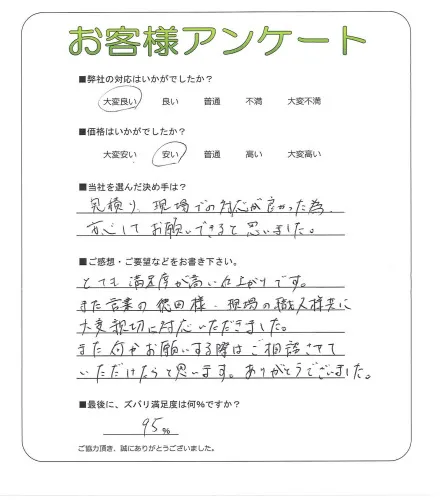 お客様アンケート
■弊社の対応はいかがでしたか？
大変良い 良い 普通 不満 大変不満
■価格はいかがでしたか？
大変安い 安い 普通 高い 大変高い
■当社を選んだ決め手は？
見積り、現場での対応が良かった為、
安心してお願いできると思いました。
■ご感想・ご要望などをお書き下さい。
とても満足度が高い仕上がりです。
また営業の徳田様、現場の職人様共に
大変親切に対応いただきました。
また何かお願いする際はご相談させて
いただけたらと思います。ありがとうございました。
■最後に、ズバリ満足度は何％ですか？
95％
ご協力頂き、誠にありがとうございました。